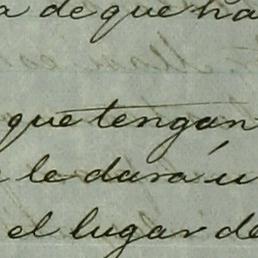 a de que ha
que tengan
le dará u
el lugar de